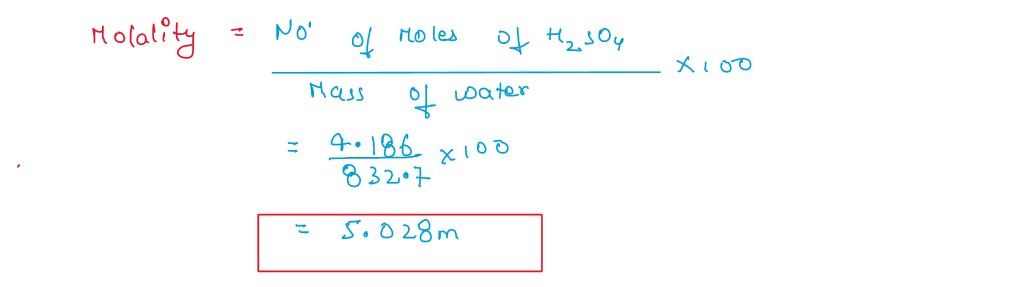 Molality = No' of Moles of H₂SO₄ / Mass of water × 100
= 4.186 / 832.7 × 100
= 5.028m